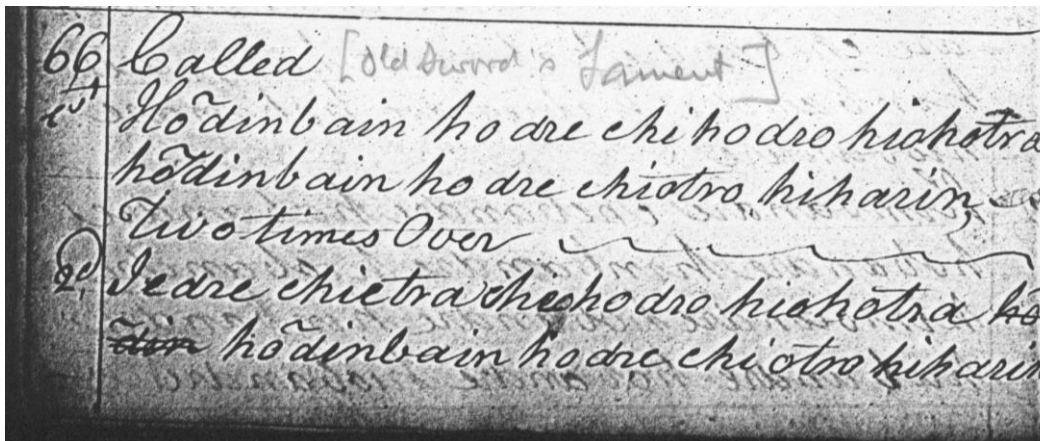 66 Called [Old Sword's Lament]
1st Hōdinbain hodre chihodro hiohotra
hōdinbain hodre chiotro hiharin,
Two times Over
2d Iedre chietra chehodro hiohotra hō
din hōdinbain hodre chiotro hiharin